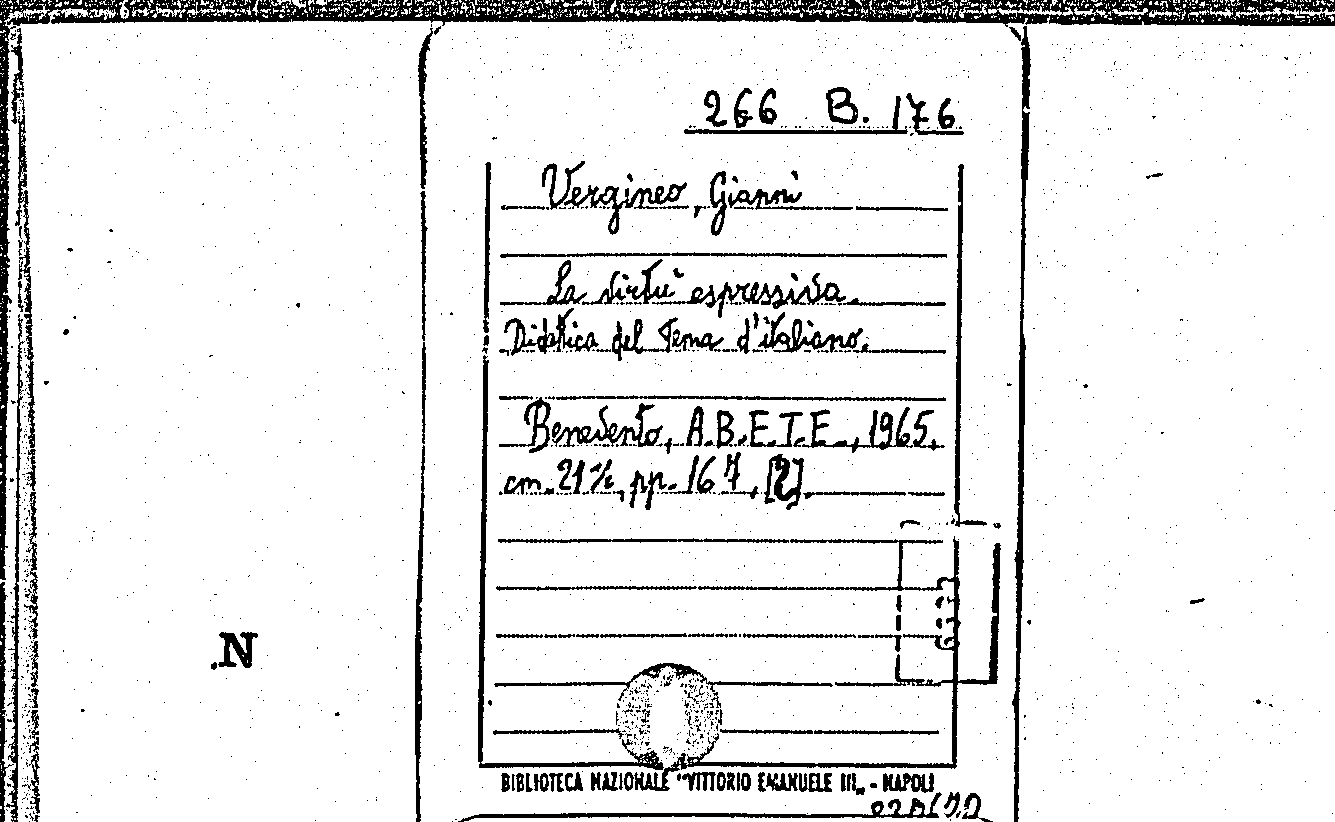 266 B. 176
Vergineo, Gianni
La virtù espressiva.
Didattica del tema d'italiano.
Benevento, A.B.E.T.E., 1965.
cm. 21½, pp. 167, [2].
N
BIBLIOTECA NAZIONALE "VITTORIO EMANUELE III„ - NAPOLI